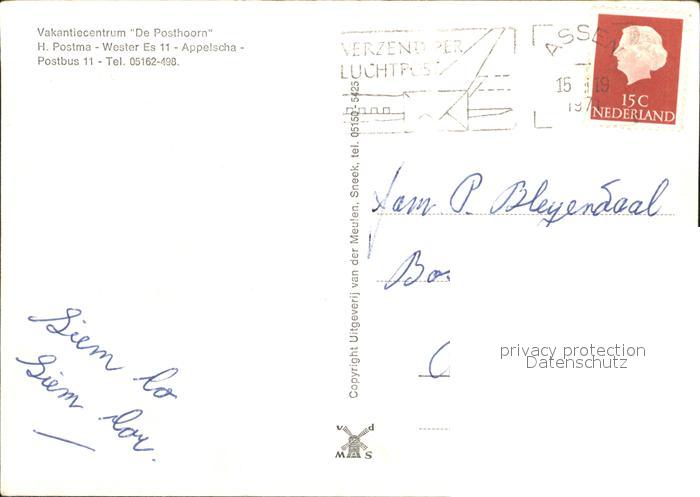 Vakantiecentrum "De Posthoorn"
H. Postma - Wester Es 11 - Appelscha -
Postbus 11 - Tel. 05162-498.
VERZEND PER
LUCHTPOST
ASSEN
15
19
197
15 C
NEDERLAND
Fam. P. Bleyendaal
Siem
Siem
Copyright Uitgeverij van der Meulen, Sneek, tel. 05150-5425
v d
M A S
privacy protection
Datenschutz